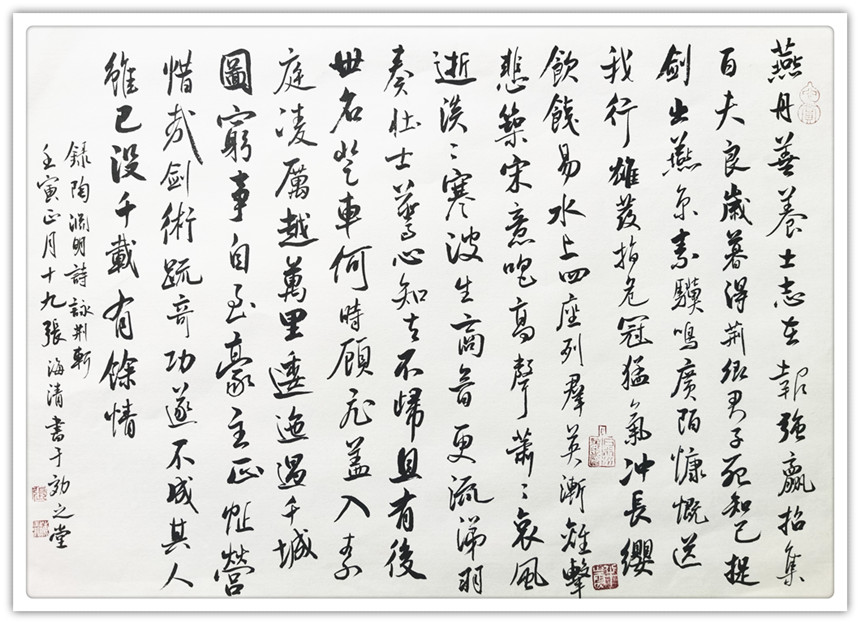 燕丹善養士志在報強嬴招集
百夫良歲暮得荊卿君子死知己提
劍出燕京素驥鳴廣陌慷慨送
我行雄發指危冠猛氣沖長纓
飲餞易水上四座列羣英漸離擊
悲築宋意唱高聲蕭〻哀風
逝淡〻寒波生商音更流涕羽
奏壯士驚心知去不歸且有後
世名登車何時顧飛蓋入秦
庭凌厲越萬里逶迤過千城
圖窮事自至豪主正怔營
惜哉劍術疏奇功遂不成其人
雖已沒千載有餘情
錄陶淵明詩詠荊軻
壬寅正月十九張海清書于効之堂